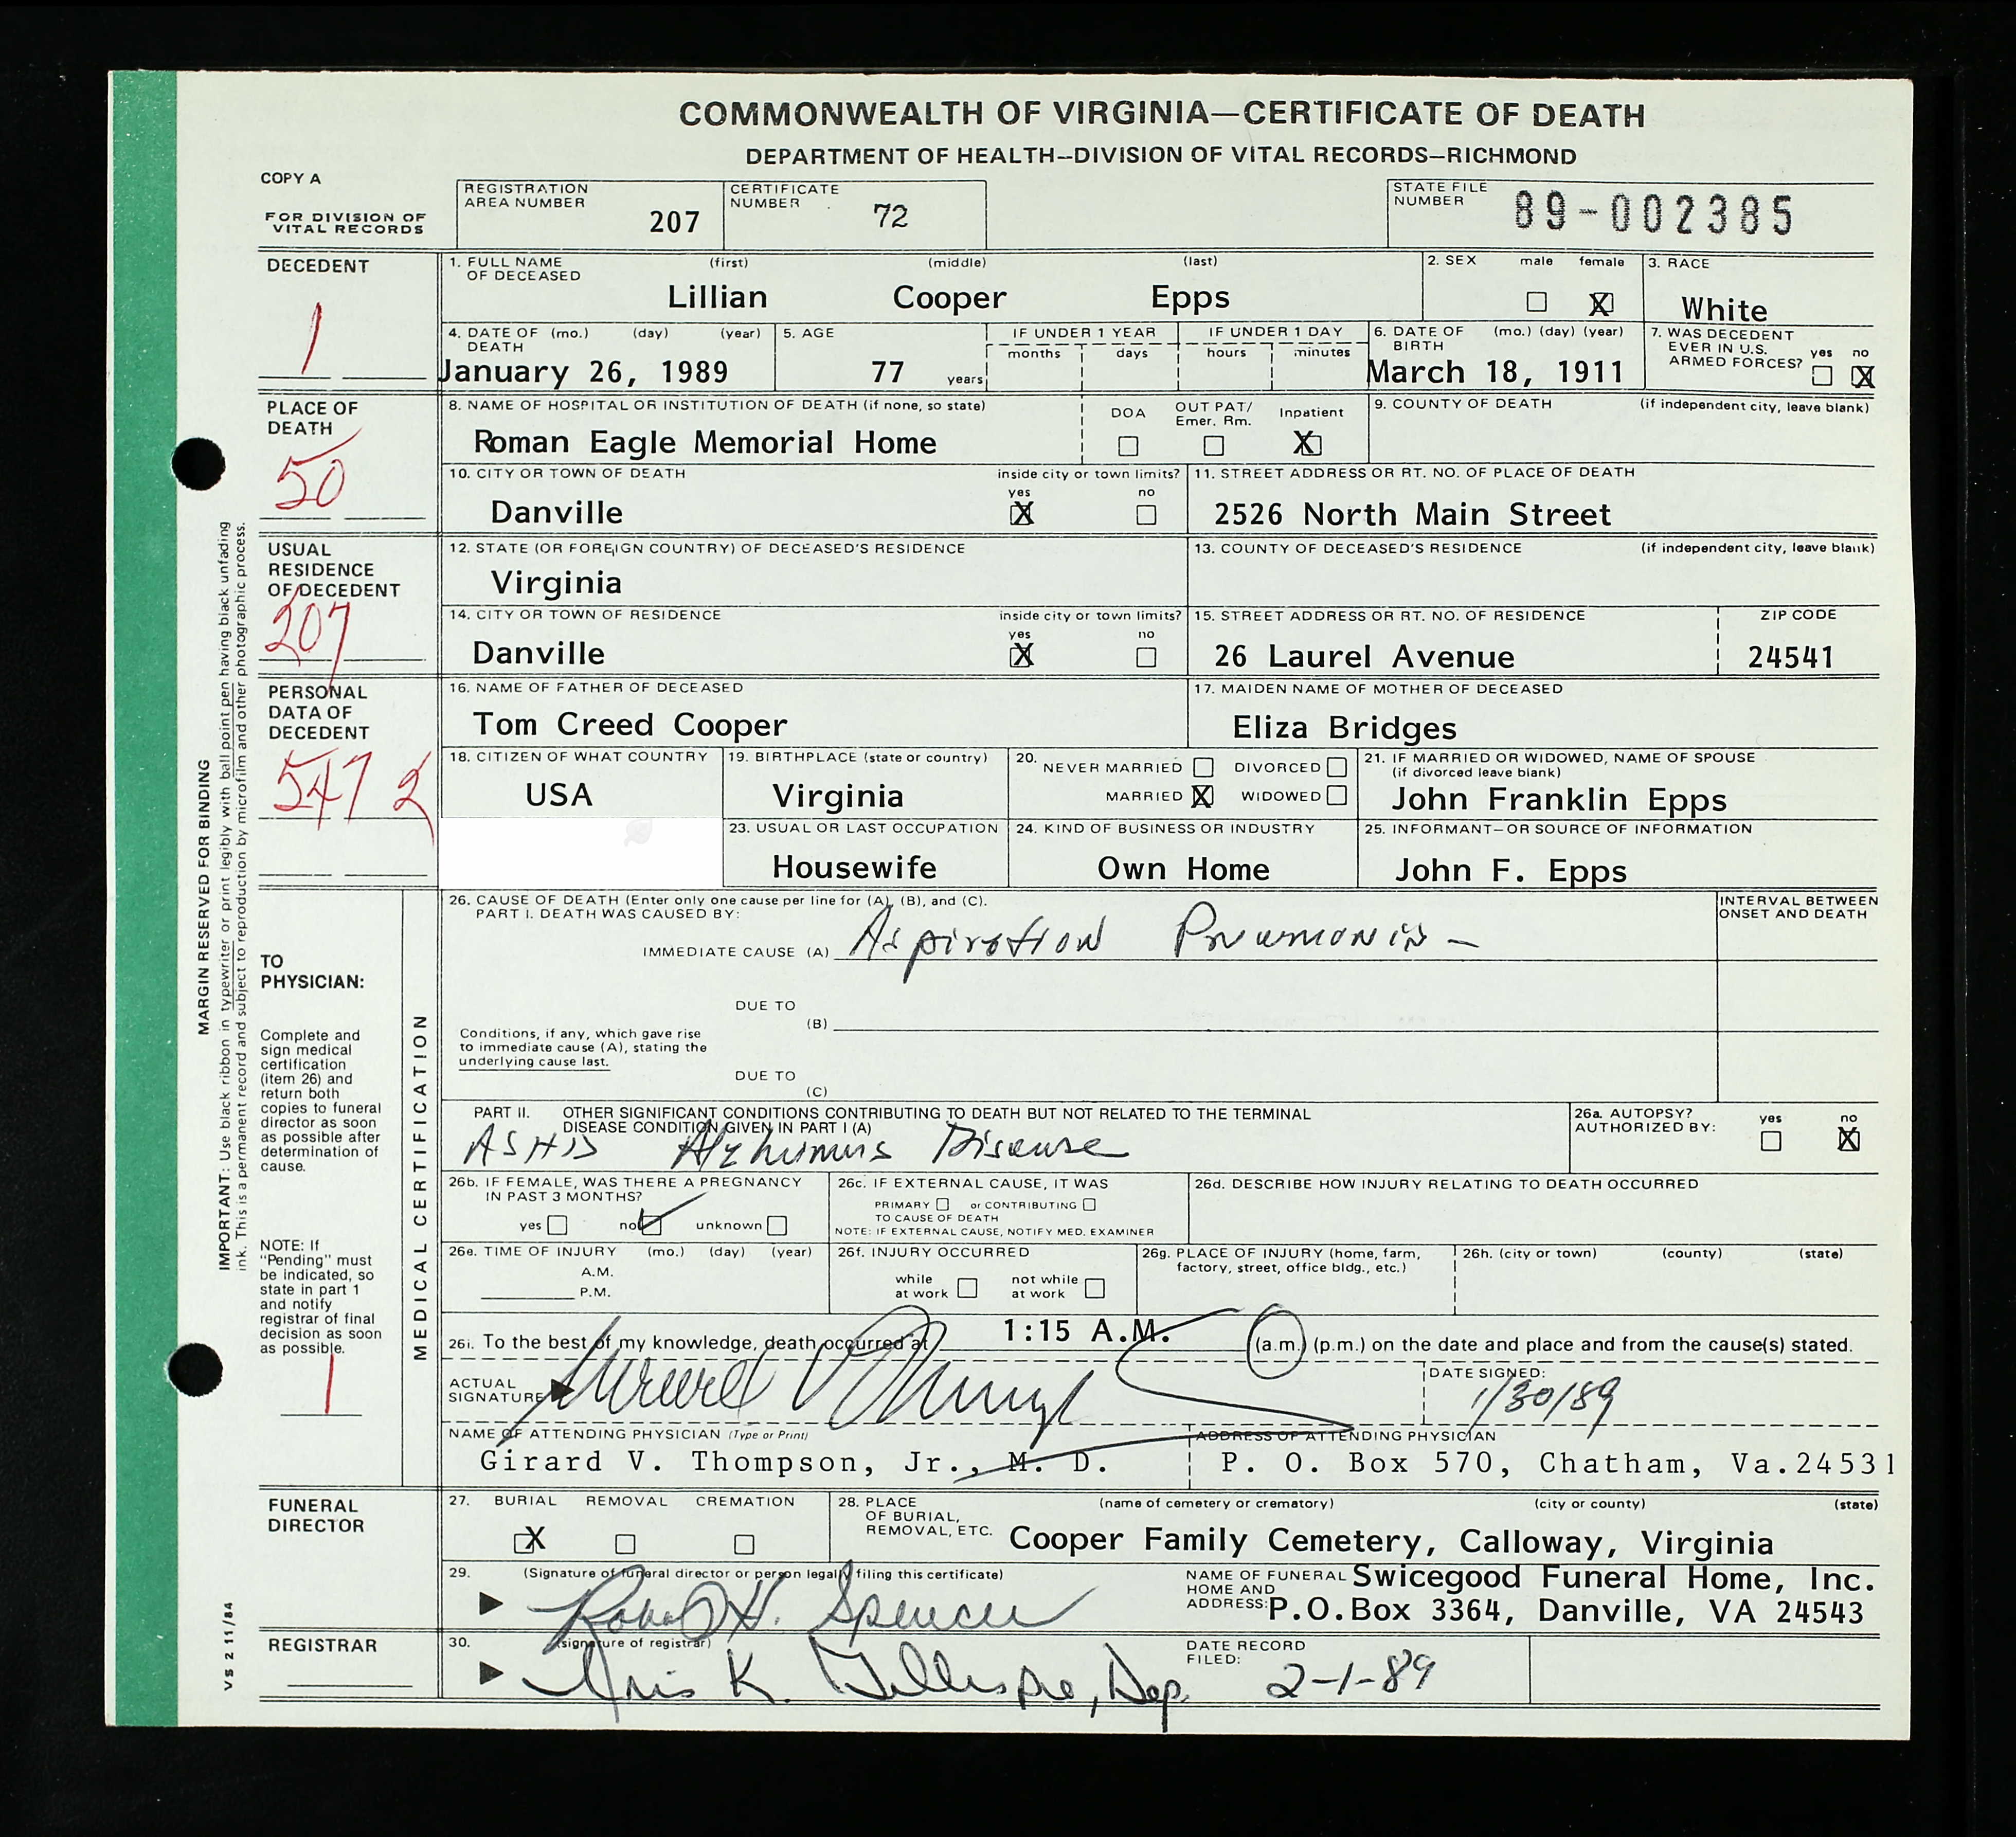 COMMONWEALTH OF VIRGINIA—CERTIFICATE OF DEATH
DEPARTMENT OF HEALTH—DIVISION OF VITAL RECORDS—RICHMOND
COPY A
FOR DIVISION OF
VITAL RECORDS
REGISTRATION
AREA NUMBER 207
CERTIFICATE
NUMBER 72
STATE FILE
NUMBER 89-002385
DECEDENT
1
1. FULL NAME (first) (middle) (last)
OF DECEASED
Lillian Cooper Epps
2. SEX male female
X
3. RACE
White
4. DATE OF (mo.) (day) (year)
DEATH
January 26, 1989
5. AGE
77 years
IF UNDER 1 YEAR
months days
IF UNDER 1 DAY
hours minutes
6. DATE OF (mo.) (day) (year)
BIRTH
March 18, 1911
7. WAS DECEDENT
EVER IN U.S.
ARMED FORCES? yes no
X
PLACE OF
DEATH
50
8. NAME OF HOSPITAL OR INSTITUTION OF DEATH (if none, so state)
Roman Eagle Memorial Home
DOA OUT PAT/ Inpatient
Emer. Rm.
X
9. COUNTY OF DEATH (if independent city, leave blank)
10. CITY OR TOWN OF DEATH inside city or town limits?
yes no
Danville X
11. STREET ADDRESS OR RT. NO. OF PLACE OF DEATH
2526 North Main Street
USUAL
RESIDENCE
OF DECEDENT
207
12. STATE (OR FOREIGN COUNTRY) OF DECEASED'S RESIDENCE
Virginia
13. COUNTY OF DECEASED'S RESIDENCE (if independent city, leave blank)
14. CITY OR TOWN OF RESIDENCE inside city or town limits?
yes no
Danville X
15. STREET ADDRESS OR RT. NO. OF RESIDENCE ZIP CODE
26 Laurel Avenue 24541
PERSONAL
DATA OF
DECEDENT
547 2
16. NAME OF FATHER OF DECEASED
Tom Creed Cooper
17. MAIDEN NAME OF MOTHER OF DECEASED
Eliza Bridges
18. CITIZEN OF WHAT COUNTRY
USA
19. BIRTHPLACE (state or country)
Virginia
20. NEVER MARRIED DIVORCED
MARRIED X WIDOWED
21. IF MARRIED OR WIDOWED, NAME OF SPOUSE
(if divorced leave blank)
John Franklin Epps
23. USUAL OR LAST OCCUPATION
Housewife
24. KIND OF BUSINESS OR INDUSTRY
Own Home
25. INFORMANT—OR SOURCE OF INFORMATION
John F. Epps
MARGIN RESERVED FOR BINDING
IMPORTANT: Use black ribbon in typewriter or print legibly with ball point pen having black unfading
ink. This is a permanent record and subject to reproduction by microfilm and other photographic process.
TO
PHYSICIAN:
Complete and
sign medical
certification
(item 26) and
return both
copies to funeral
director as soon
as possible after
determination of
cause.
NOTE: If
"Pending" must
be indicated, so
state in part 1
and notify
registrar of final
decision as soon
as possible.
1
MEDICAL CERTIFICATION
26. CAUSE OF DEATH (Enter only one cause per line for (A), (B), and (C).
PART I. DEATH WAS CAUSED BY:
INTERVAL BETWEEN
ONSET AND DEATH
IMMEDIATE CAUSE (A) Aspiration Pneumonia –
DUE TO
(B)
Conditions, if any, which gave rise
to immediate cause (A), stating the
underlying cause last.
DUE TO
(C)
PART II. OTHER SIGNIFICANT CONDITIONS CONTRIBUTING TO DEATH BUT NOT RELATED TO THE TERMINAL
DISEASE CONDITION GIVEN IN PART I (A)
ASHD Alzhimers Disease
26a. AUTOPSY?
AUTHORIZED BY: yes no
X
26b. IF FEMALE, WAS THERE A PREGNANCY
IN PAST 3 MONTHS?
yes no unknown
26c. IF EXTERNAL CAUSE, IT WAS
PRIMARY or CONTRIBUTING
TO CAUSE OF DEATH
NOTE: IF EXTERNAL CAUSE, NOTIFY MED. EXAMINER
26d. DESCRIBE HOW INJURY RELATING TO DEATH OCCURRED
26e. TIME OF INJURY (mo.) (day) (year)
A.M.
P.M.
26f. INJURY OCCURRED
while not while
at work at work
26g. PLACE OF INJURY (home, farm,
factory, street, office bldg., etc.)
26h. (city or town) (county) (state)
26i. To the best of my knowledge, death occurred at 1:15 A.M. (a.m.) (p.m.) on the date and place and from the cause(s) stated.
ACTUAL
SIGNATURE
DATE SIGNED:
1/30/89
NAME OF ATTENDING PHYSICIAN (Type or Print)
Girard V. Thompson, Jr., M. D.
ADDRESS OF ATTENDING PHYSICIAN
P. O. Box 570, Chatham, Va.24531
FUNERAL
DIRECTOR
27. BURIAL REMOVAL CREMATION
X
28. PLACE (name of cemetery or crematory) (city or county) (state)
OF BURIAL,
REMOVAL, ETC. Cooper Family Cemetery, Calloway, Virginia
29. (Signature of funeral director or person legally filing this certificate)
Robert H. Spencer
NAME OF FUNERAL Swicegood Funeral Home, Inc.
HOME AND
ADDRESS: P.O.Box 3364, Danville, VA 24543
REGISTRAR
30. (signature of registrar)
Iris K. Gillespie, Dep.
DATE RECORD
FILED: 2-1-89
VS 2 11/84